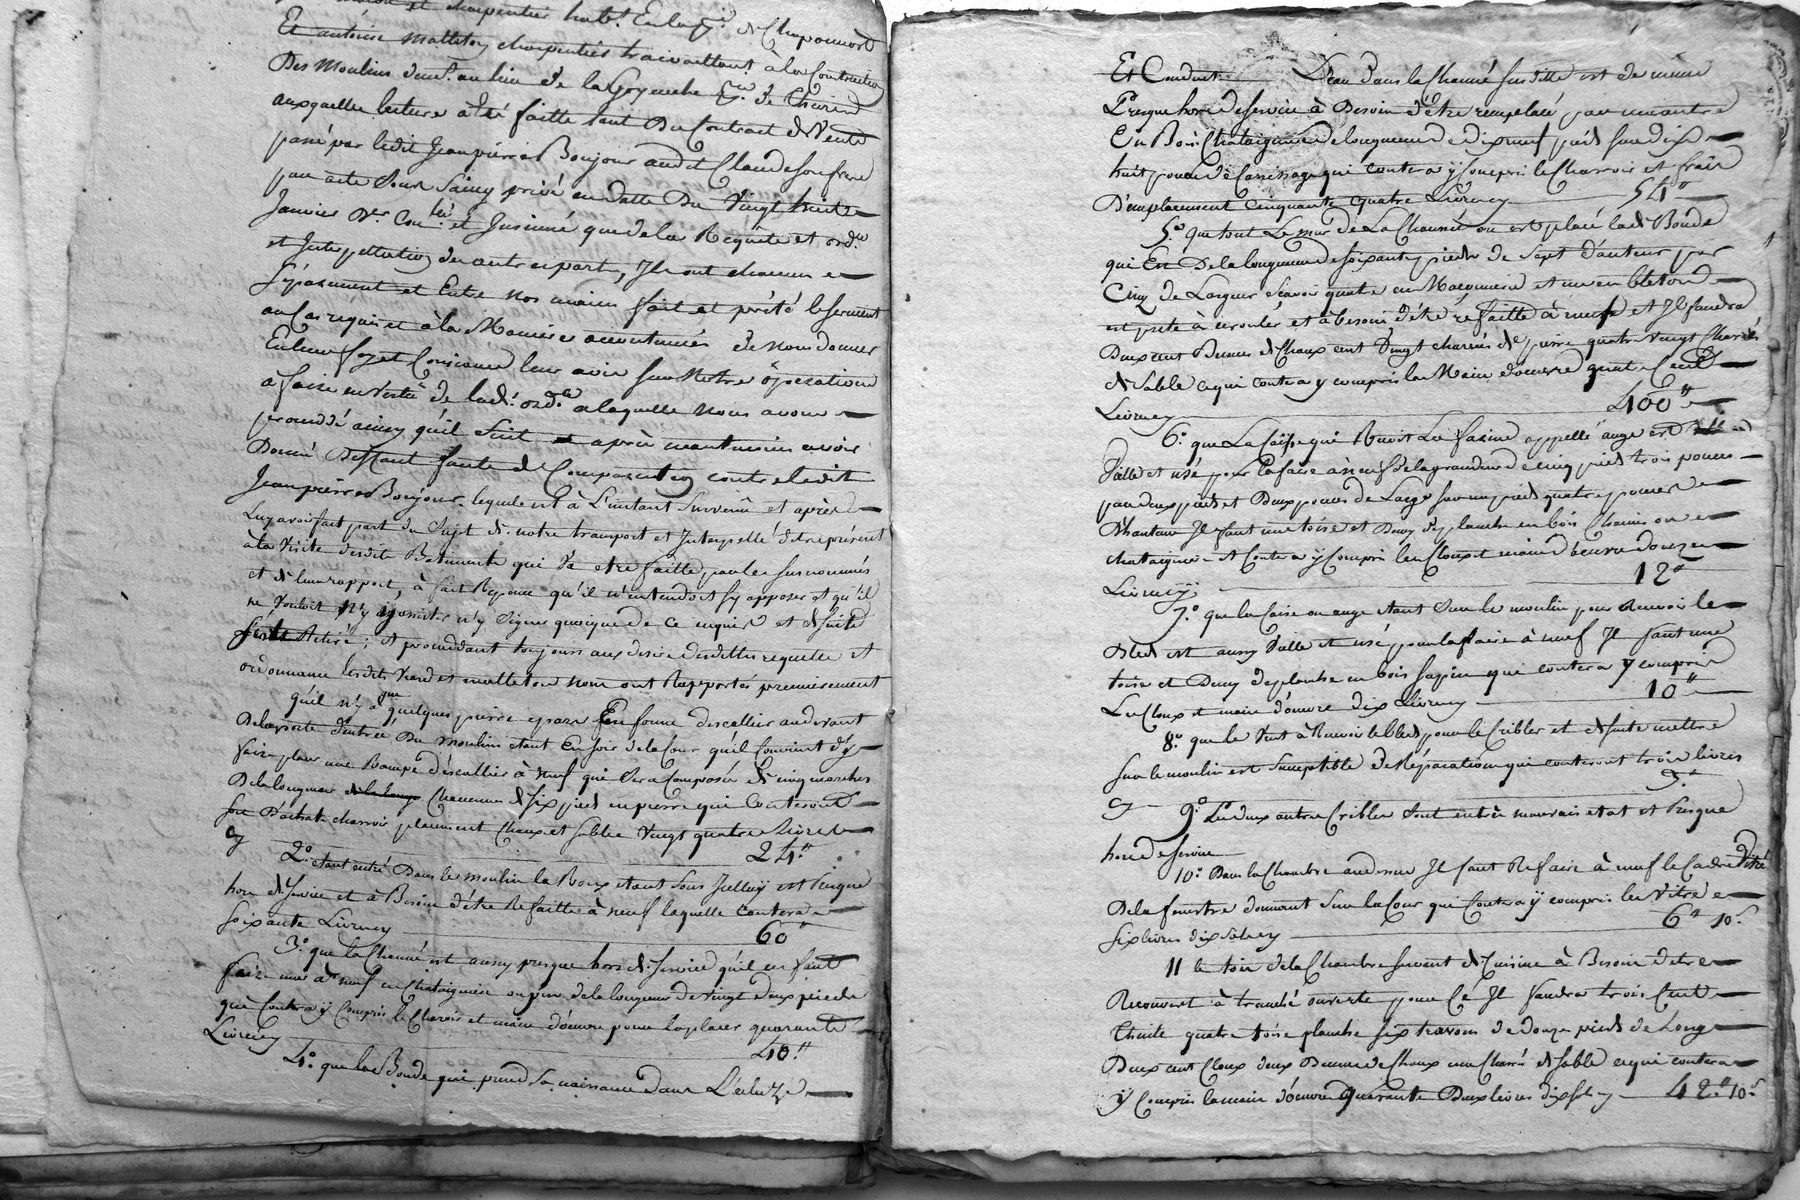 et charpentier habt. En la p.sse de Chaponnost
Et antoine Malleton charpentier travaillant à la Construction
Des Moulins deud. au lieu de la Goyenche
auxquelles lecture a été faitte tant Du Contract de Vente
passé par ledit Jeanpierre Bonjour audit Claude son frere
par acte Sous Saing privé en datte Du Vingt huit
Janvier Der. et que de la Requête et ord.ce
et Interpellation des autres part, Ils ont chacun
Séparement et Entre nos mains fait et prété le serment
au Cas requis et à la Maniere accoutumée de nous donner
En leur foy et Conscience leur avis sur Notre operation
à faire en Vertu de lad.e ord.ce a laquelle nous avons
procedé ainsy qu'il Suit et après neantmoins avoir
Donné Deffaut faute de Comparution contre ledit
Jeanpierre Bonjour lequel est à L'instant Survenu et après
Luy avoir fait part du Sujet de notre transport et Interpellé d'etre présent
à la Visite desdits Batiments qui Va etre faitte par les susnommés
et de leur rapport, à fait Reponse qu'il n'entendoit s'y opposer et qu'il
ne Vouloit n'y assister n'y Signer quoique de ce enquis et de suite
s'est Retiré; et procedant toujours aux desirs desdittes requette et
ordonnance lesdits et malleton nous ont Rapportés premierement
qu'il n'y a que quelques pierre eparse En forme d'escallier au devant
De la porte d'entrée Du moulin etant En soir de la Cour qu'il Convient d'y
faire placer une Rampe d'escallier à neuf qui Sera Composée de cinq marches
De la longueur Chacunes de six pieds en pierre qui Couteront
soit D'achat charroir placement Chaux et sable Vingt quatre Livres
cy 24#
2.o etant entré Dans le moulin la Roux etant Sous Julluy est Presque
hors de Service et à Besoin d'être Refaitte à neuf laquelle Coutera
soixante Livres cy 60#
3.o que la Chenné est aussy presque hors de Service qu'il en faut
faire une à neuf en Chataignier ou pin de la longueur de Vingt deux pieds
qui Coutera y Compris le Charois et main d'œuvre pour la placer quarante
Livres cy 40#
4.o que la Bonde qui prend Sa naissance dans L'écluze
Et Conduit L'eau Dans la Chenné susditte est de même
Presque hors de Service à Besoin d'être remplacé par une autre
En Bois Chataignier de longueur de dix neuf pieds sur dix
huit pouces d'ecarrissage qui coutera y Compris le Charrois et frais
D'emplacement Cinquante quatre Livres cy 54#
5.o que tout Le mur de La Chaussée ou est placé lad. Bonde
qui Est De la longueur de soixante pieds de Sept d'auteur par
Cinq de Largeur Scavoir quatre en Maçonnerie et un en bletond
est prete à ecrouler et à besoin d'être refaitte à neuf et Il faudra
Deux cent Bennes de Chaux cent Vingt charrés de pierre quatre vingt Charrés
de Sable ce qui Coutera y compris la Main d'œuvre quatre Cent
Livres cy 400#
6.o que La Caisse qui Recoit La farine appellé auge est
Vielle et usé pour la faire à neuf de la grandeur de cinq pieds trois pouces
par deux pieds et Deux pouces de Large sur un pied quatre pouces
D'hauteur Il faut une toise et Demy de planche en bois Chaine ou
chataignier et Coutera y Compris les Cloux et main d'œuvre douze
Livres cy 12#
7.o que la Caisse ou auge etant Sur le moulin pour Recevoir le
Bled est aussy Vielle et usé pour la faire à neuf Il faut une
toise et Demy de planche en bois sappin qui coutera y compris
Les Cloux et main d'œuvre dix Livres cy 10#
8.o que le Vent à Recevoir le bled pour le Cribler et de suite mettre
sur le moulin est Suceptible de Réparation qui couteront trois livres
cy 3#
9.o Les deux autres Cribles Sont en très mauvais etat et Presque
hors de service
10.o Dans la Chambre audessus Il faut Refaire à neuf le Cadre Vitré
De la fenestre donnant Sur la Cour qui Coutera y compris les Vitres
Six livres dix sols cy 6# 10s
11 le toit de la Chambre servant de Cuisine à Besoin d'etre
Recouvert à tranché ouverte pour Ce Il faudra trois Cent
thuile quatre toise planche six travons de douze pieds de Long
Deux cent Cloux deux Bennes de Chaux une Charré de sable ce qui coutera
y Compris la main d'œuvre quarante Deux livres dix sols cy 42# 10s